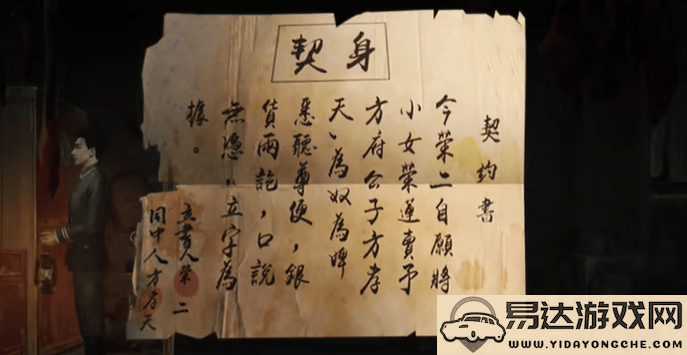 身契
契約書
今榮二自願將
小女榮蓮賣予
方府公子方孝
天，為奴為婢
悉聽尊便，銀
貨兩訖，口說
無憑，立字為
據。
立書人榮二
同中人方孝天
易达游戏网
WWW.YIDAYONGCHE.COM